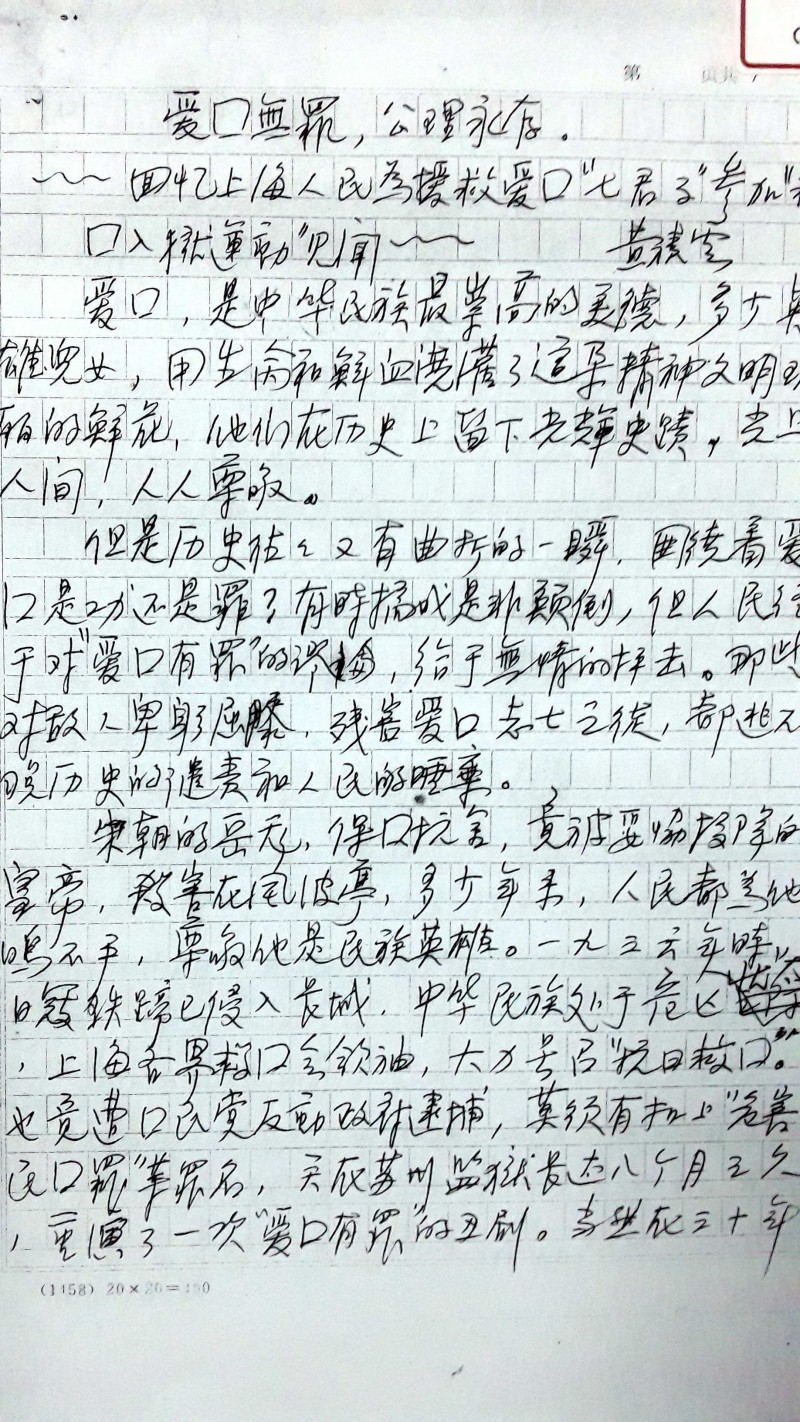 第 页共
爱口無罪，公理永存。
～～回忆上海人民為援救爱口"七君子"参加"
口入獄運動"见闻～～ 黄
爱口，是中华民族最崇高的美德，多少英
雄兒女，用生命和鲜血浇灌了這朵精神文明
丽的鲜花，他们在历史上留下光輝史蹟，
人间，人人尊敬。
但是历史往々又有曲折的一瞬，围绕着爱
口是功还是罪？有時搞成是非颠倒，但人民
于对"爱口有罪"的谬論，给于無情的抨击。那些
对敌人卑躬屈膝，残害爱口志士之徒，都逃不
脱历史的谴责和人民的唾棄。
宋朝的岳飞，保口抗金，竟被妥协投降的
皇帝，殺害在风波亭，多少年来，人民都為他
鳴不平，尊敬他是民族英雄。一九三六年時，
日寇鉄蹄已侵入长城，中华民族处于危亡
，上海各界救口会领袖，大力号召"抗日救口"。
也竟遭口民党反動政府逮捕，莫须有扣上"危害
民口罪"等罪名，关在苏州监獄长达八个月之久
，重演了一次"爱口有罪"的丑剧。当然在三十年
(1458) 20×20=400